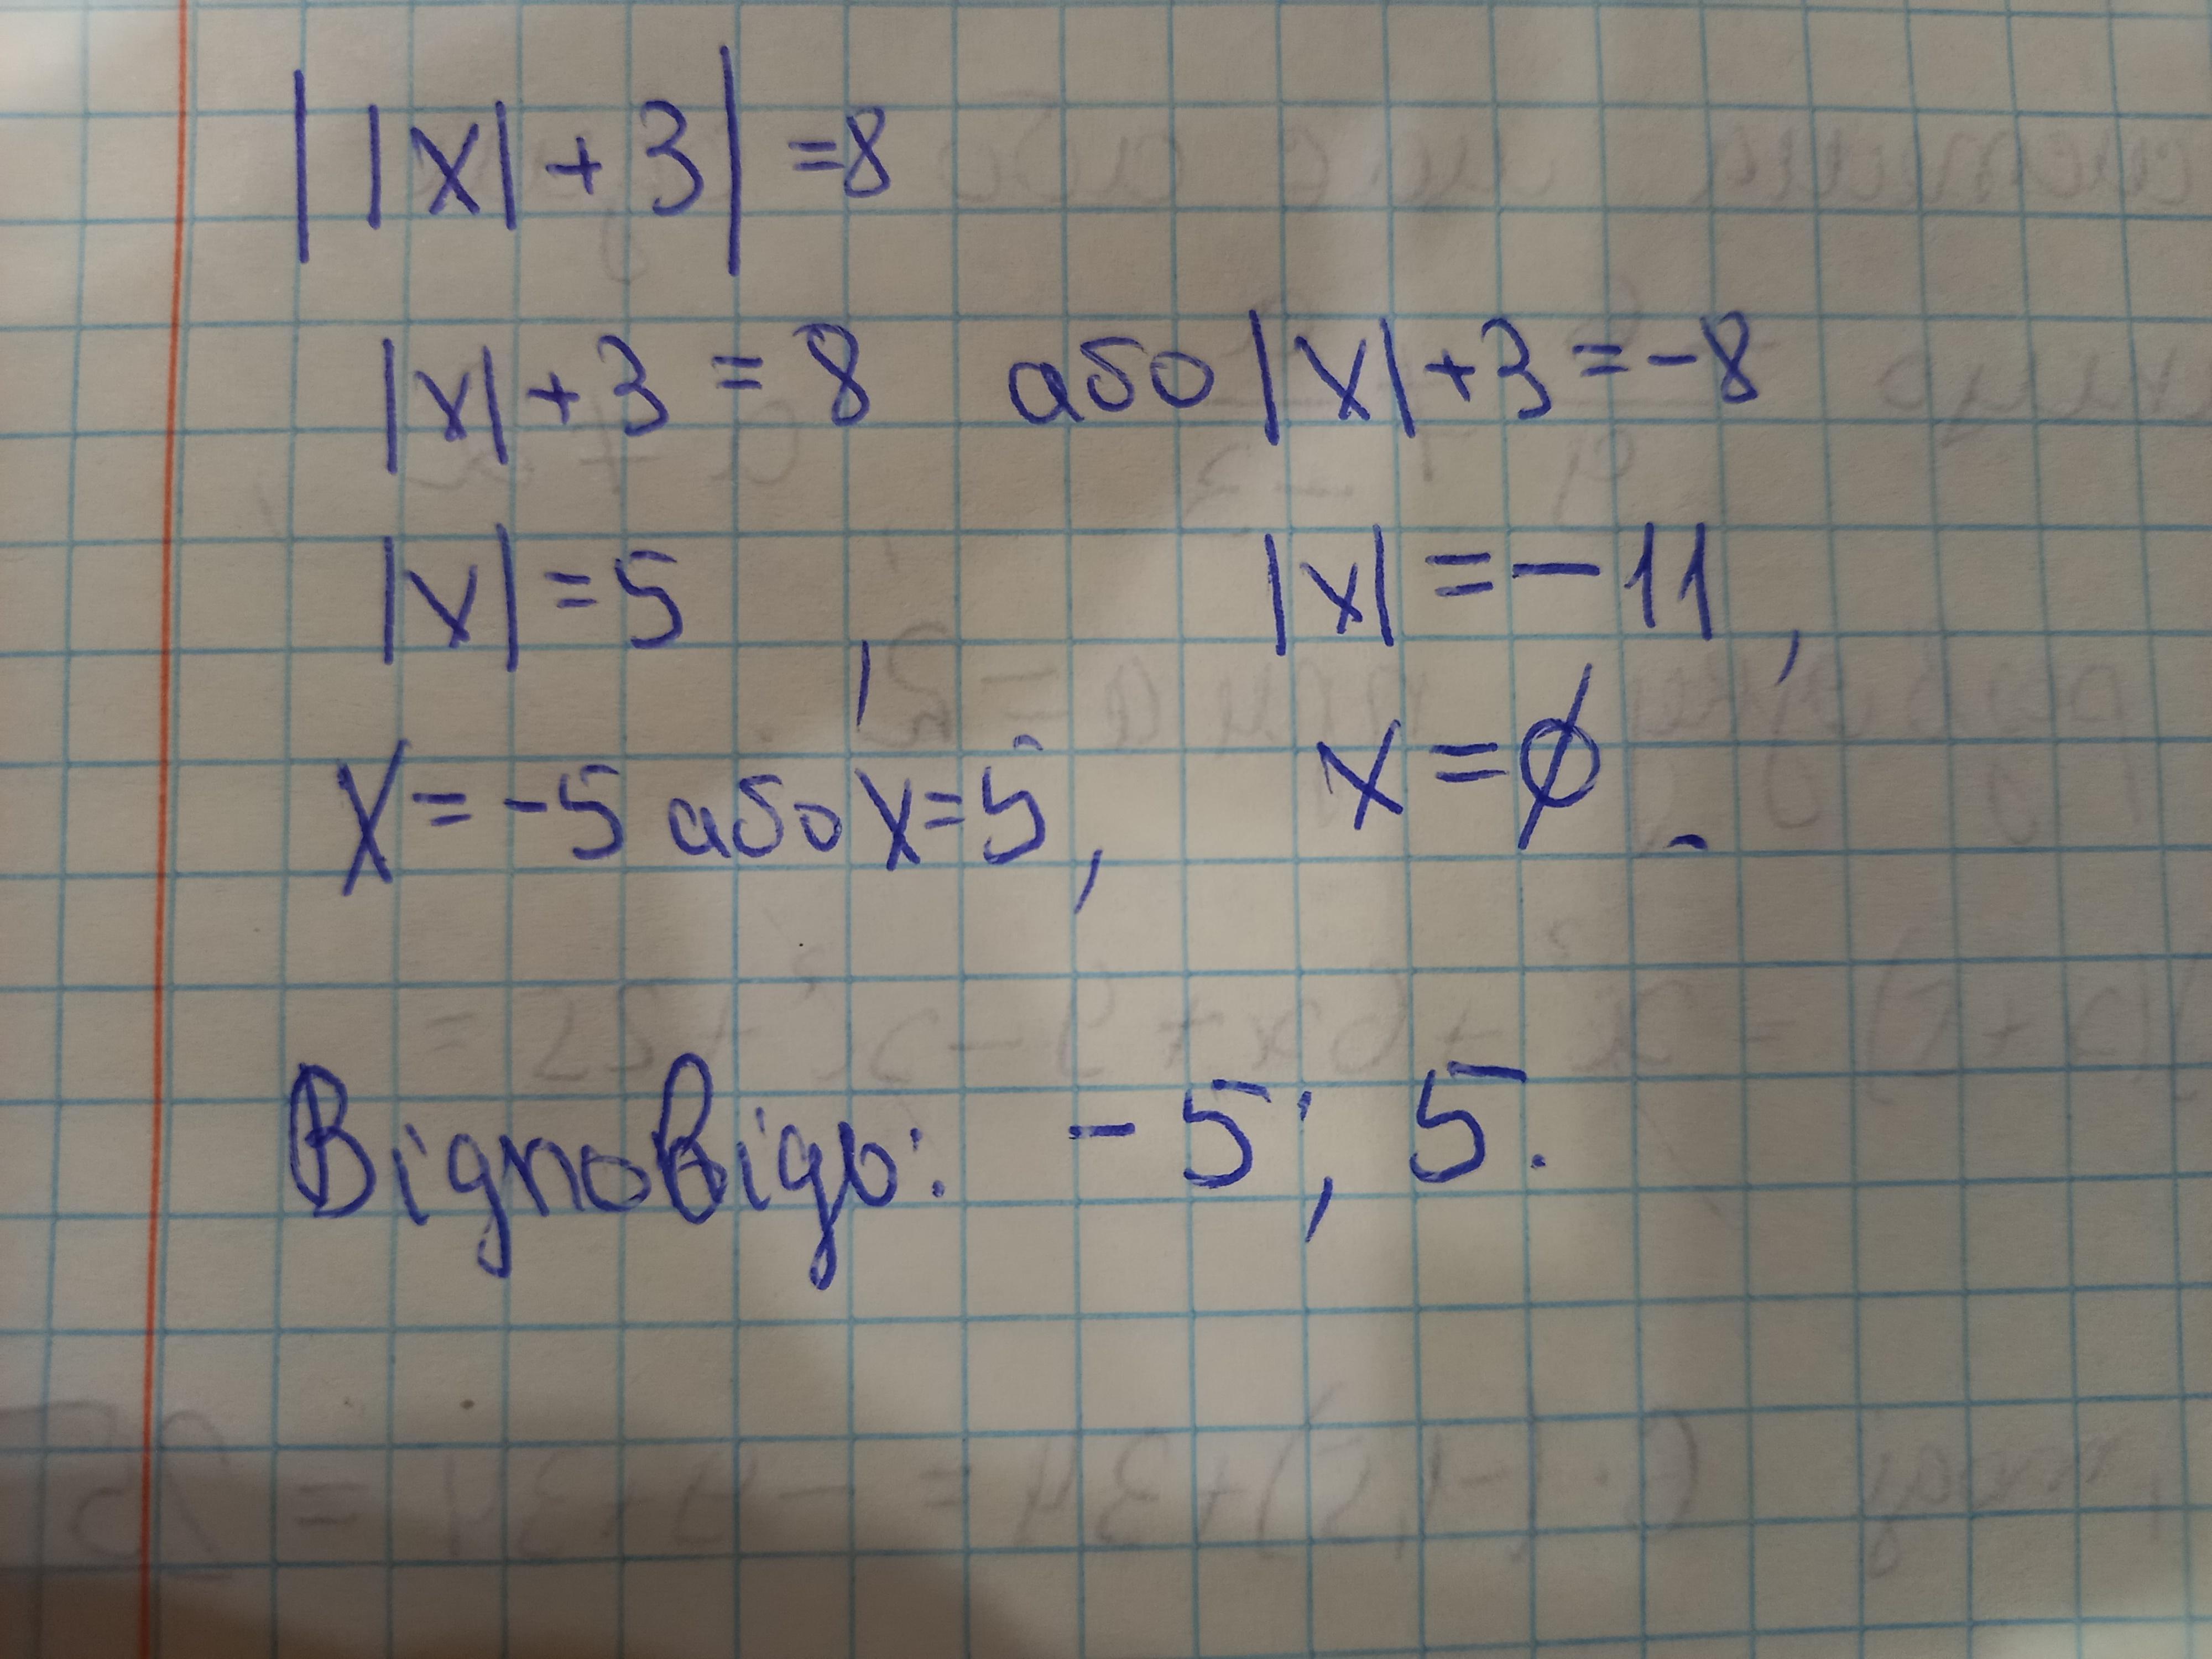 ||x|+3|=8
|x|+3=8 або |x|+3=-8
|x|=5, |x|=-11,
x=-5 або x=5, x=∅.
Відповідь: -5; 5.